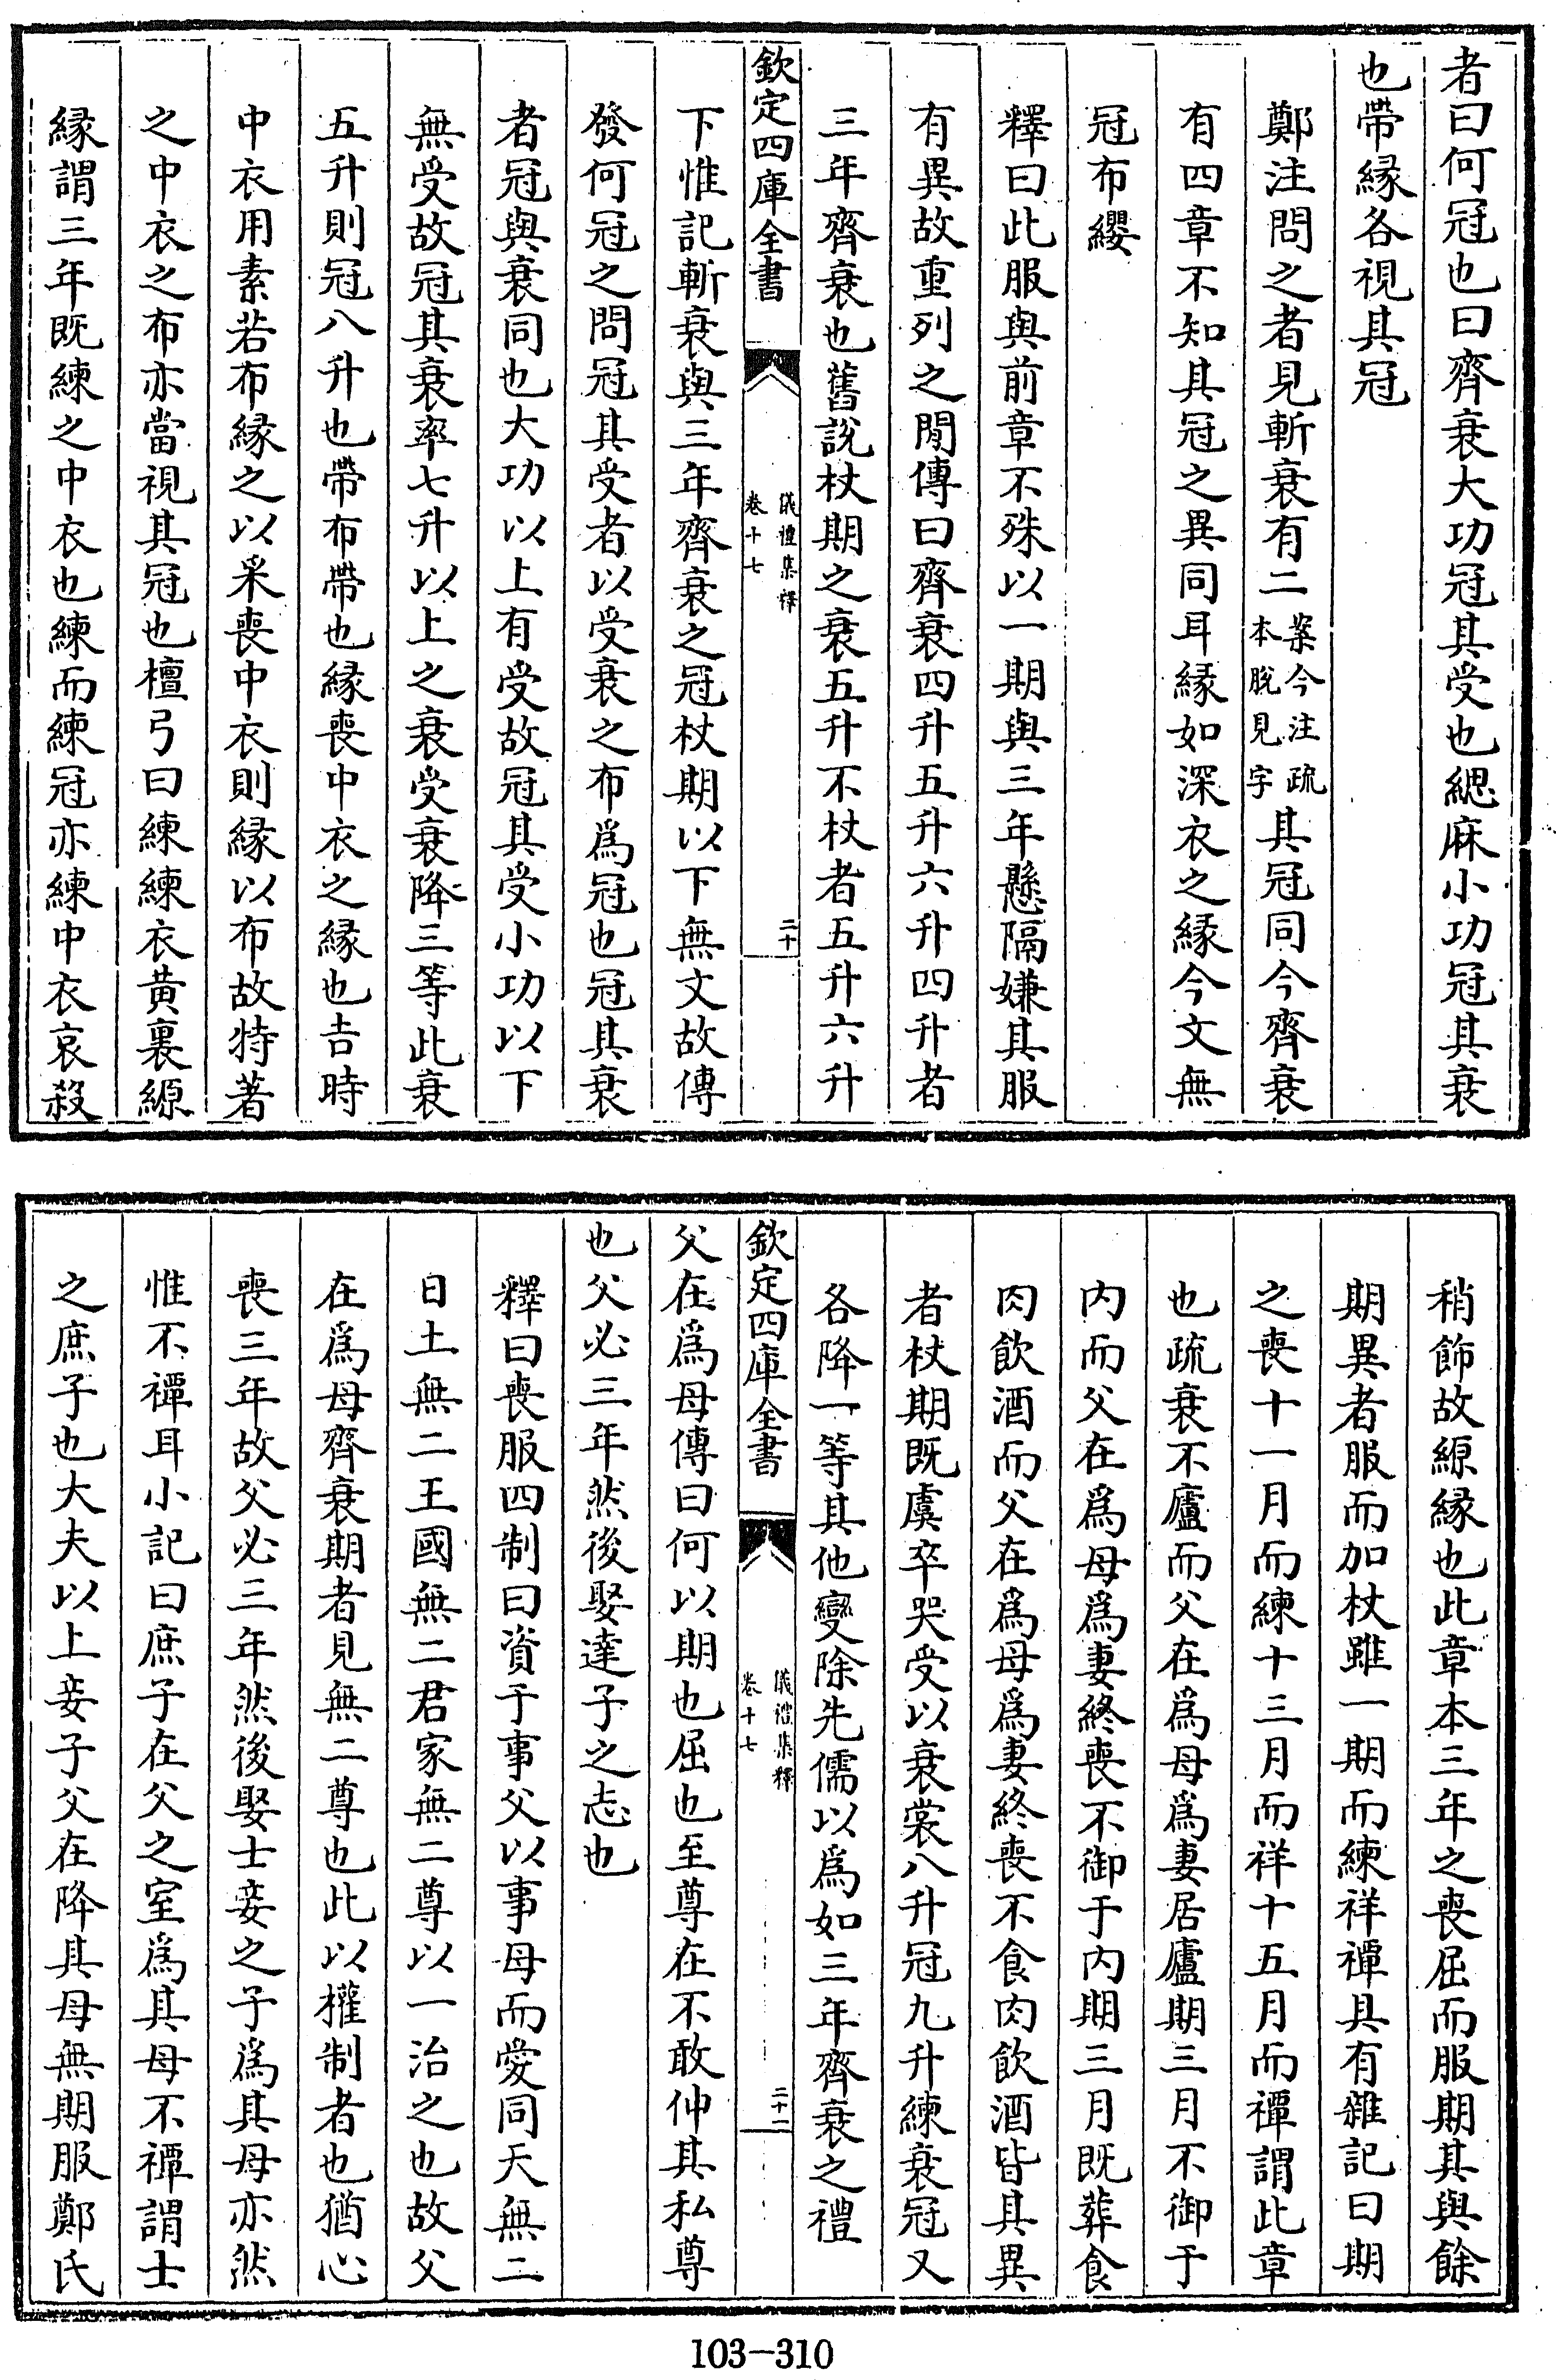 者曰何冠也曰齊衰大功冠其受也緦麻小功冠其衰
也帶縁各視其冠
鄭注問之者見斬衰有二案今注疏本脫見字其冠同今齊衰
有四章不知其冠之異同耳縁如深衣之縁今文無
冠布纓
釋曰此服與前章不殊以一期與三年懸隔嫌其服
有異故重列之閒傳曰齊衰四升五升六升四升者
三年齊衰也舊說杖期之衰五升不杖者五升六升
欽定四庫全書
儀禮集釋
卷十七
二十
下惟記斬衰與三年齊衰之冠杖期以下無文故傳
發何冠之問冠其受者以受衰之布爲冠也冠其衰
者冠與衰同也大功以上有受故冠其受小功以下
無受故冠其衰率七升以上之衰受衰降三等此衰
五升則冠八升也帶布帶也縁喪中衣之縁也吉時
中衣用素若布縁之以采喪中衣則縁以布故特著
之中衣之布亦當視其冠也檀弓曰練練衣黃裏縓
縁謂三年既練之中衣也練而練冠亦練中衣哀殺
稍飾故縓縁也此章本三年之喪屈而服期其與餘
期異者服而加杖雖一期而練祥禫具有雜記曰期
之喪十一月而練十三月而祥十五月而禫謂此章
也疏衰不廬而父在爲母爲妻居廬期三月不御于
内而父在爲母爲妻終喪不御于内期三月既葬食
肉飲酒而父在爲母爲妻終喪不食肉飲酒皆其異
者杖期既虞卒哭受以衰裳八升冠九升練衰冠又
各降一等其他變除先儒以爲如三年齊衰之禮
欽定四庫全書
儀禮集釋
卷十七
二十一
父在爲母傳曰何以期也屈也至尊在不敢伸其私尊
也父必三年然後娶達子之志也
釋曰喪服四制曰資于事父以事母而愛同天無二
日土無二王國無二君家無二尊以一治之也故父
在爲母齊衰期者見無二尊也此以權制者也猶心
喪三年故父必三年然後娶士妾之子爲其母亦然
惟不禫耳小記曰庶子在父之室爲其母不禫謂士
之庶子也大夫以上妾子父在降其母無期服鄭氏
103-310